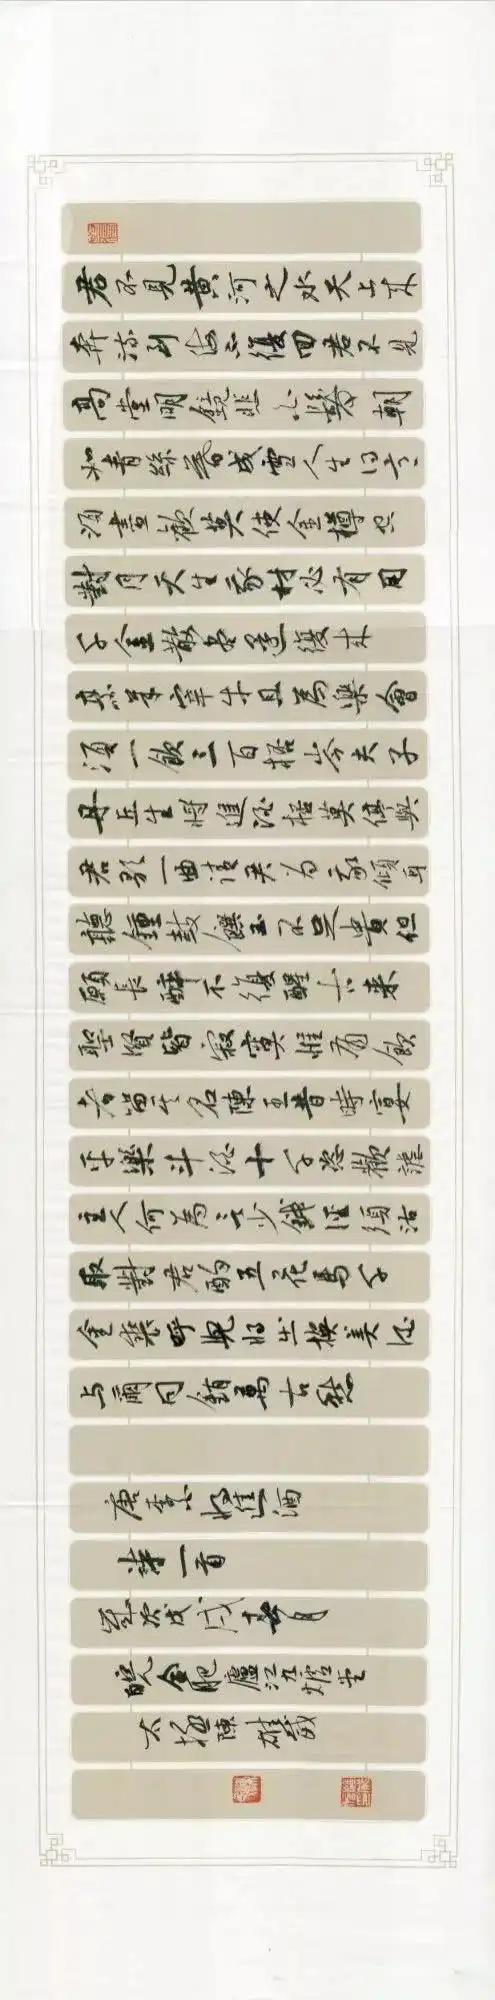 君不見黃河之水天上來
奔流到海不復回君不見
高堂明鏡悲白髮朝
如青絲暮成雪人生得意
須盡歡莫使金樽空
對月天生我材必有用
千金散盡還復來
烹羊宰牛且為樂會
須一飲三百杯岑夫子
丹丘生將進酒杯莫停與
君歌一曲請君為我傾耳
聽鐘鼓饌玉不足貴但
願長醉不復醒古來
聖賢皆寂寞惟有飲
者留其名陳王昔時宴
平樂斗酒十千恣歡謔
主人何為言少錢徑須沽
取對君酌五花馬千
金裘呼兒將出換美酒
与爾同銷萬古愁
唐李白將進酒
詩一首
歲次戊戌 月
皖合肥廬江 堂
太極陳雄